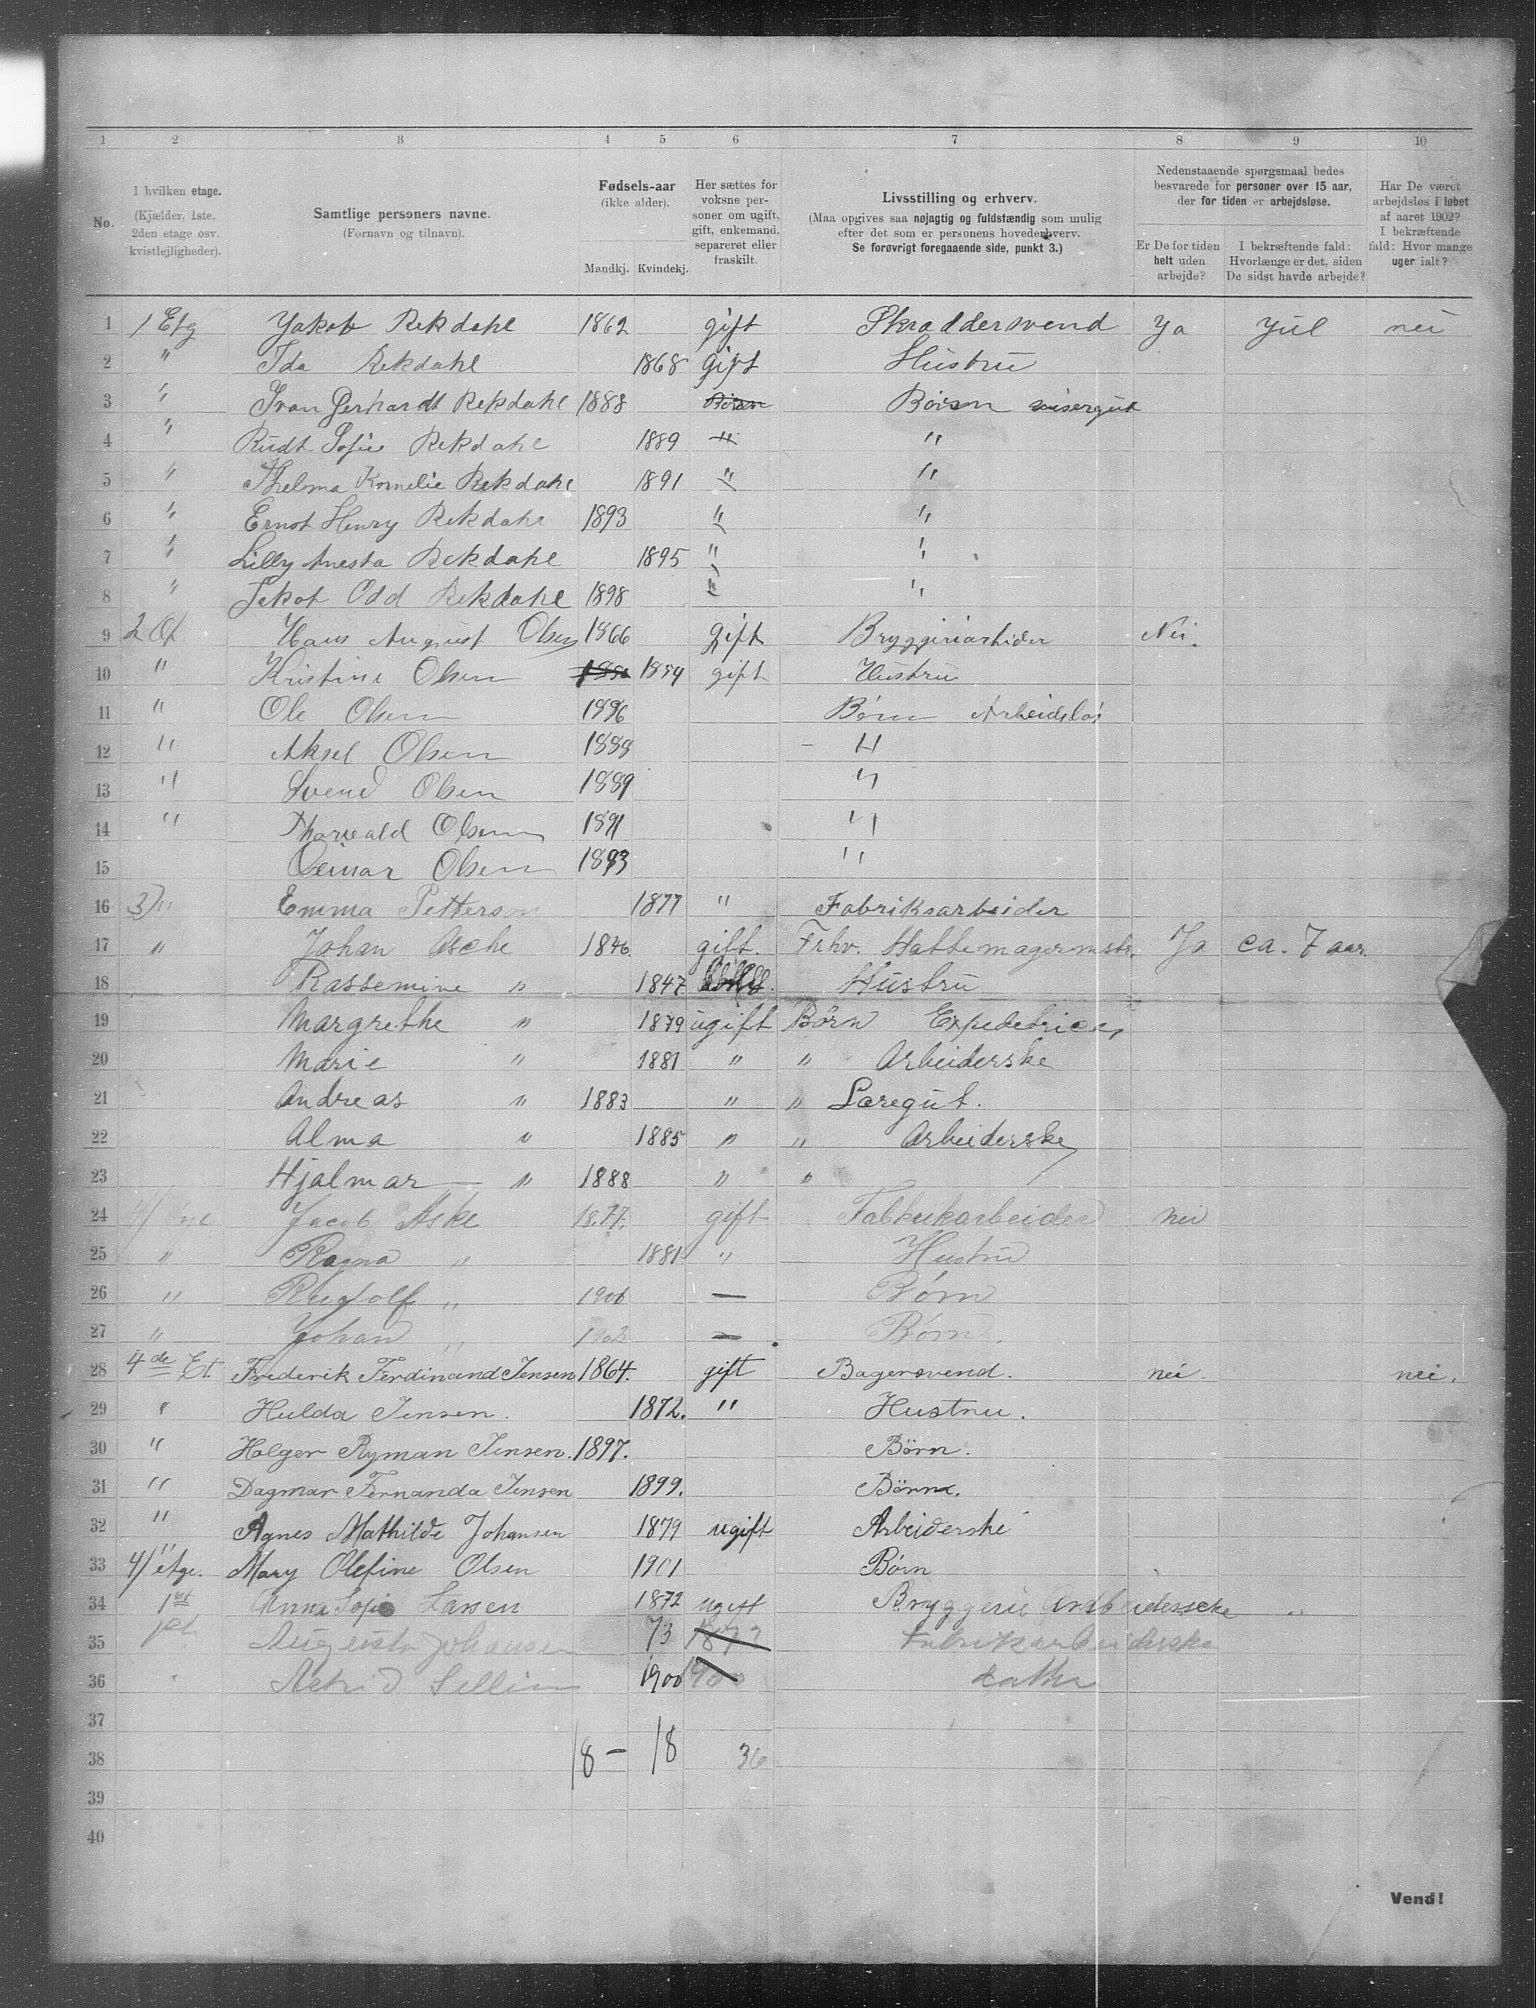 1 2 3 4 5 6 7 8 9 10
No.
I hvilken etage. (Kjælder, 1ste. 2den etage osv. kvistlejligheder).
Samtlige personers navne. (Fornavn og tilnavn).
Fødsels-aar (ikke alder). Mandkj. Kvindekj.
Her sættes for voksne personer om ugift, gift, enkemand, separeret eller fraskilt.
Livsstilling og erhverv. (Maa opgives saa nøjagtig og fuldstændig som mulig efter det som er personens hovederhverv. Se forøvrigt foregaaende side, punkt 3.)
Nedenstaaende spørgsmaal bedes besvarede for personer over 15 aar, der for tiden er arbejdsløse.
Er De for tiden helt uden arbejde?
I bekræftende fald: Hvorlænge er det, siden De sidst havde arbejde?
Har De været arbejdsløs i løbet af aaret 1902? I bekræftende fald: Hvor mange uger ialt?
1 1 Etg Jakob Rekdahl 1862 gift Skræddersvend Ja Jul nei
2 " Ida Rekdahl 1868 gift Hustru
3 " Ivan Gerhardt Rekdahl 1888 Börn Börn visergut
4 " Rudt Sofie Rekdahl 1889 " "
5 " Thelma Kornelie Rekdahl 1891 " "
6 " Ernst Henry Rekdahl 1893 " "
7 " Lilly Anesta Rekdahl 1895 " "
8 " Jakob Odd Rekdahl 1898 " "
9 2 Et. Hans August Olsen 1866 gift Bryggeriarbider Nei.
10 " Kristine Olsen 1854 gift Hustru
11 " Ole Olsen 1896 Börn Arbeidsløs
12 " Aksel Olsen 1888 "
13 " Svend Olsen 1889 "
14 " Thorvald Olsen 1891 "
15 Oeinar Olsen 1893 "
16 3) " Emma Petterson 1877 " Fabriksarbeider
17 " Johan Aske 1846 gift. Frhv. Hattemagermstr. Ja ca. 7 aar.
18 Rassemine " 1847 Hustru
19 Margrethe " 1879 ugift Børn Expeditrice,
20 Marie " 1881 " " Arbeiderske
21 Andreas " 1883 " " Læregut.
22 Alma " 1885 " " Arbeiderske
23 Hjalmar " 1888 " "
24 4/ Jacob Aske 1877. gift Fabrikarbeider nei
25 " Ragna " 1881 " Hustru
26 " Rudolf " 1900 — Børn
27 " Johan " 1902 — Børn.
28 4de Et Frederik Ferdinand Jensen 1864. gift Bagersvend. nei. nei.
29 " Hulda Jensen. 1872. " Hustru.
30 " Holger Ryman Jensen. 1897. Børn.
31 " Dagmar Fernanda Jensen 1899. Børn.
32 " Agnes Mathilde Johansen 1879 ugift Arbeiderske
33 4/ etge. Mary Olefine Olsen 1901 Børn
34 1st Anna Sofie Larsen 1872 ugift Bryggerie Arbeiderske "
35 1st Augusta Johansen 73 1873 Fabrikarbeiderske
36 " Astrid 1900 1900
37
38 18 — 18 36
39
40
Vend!